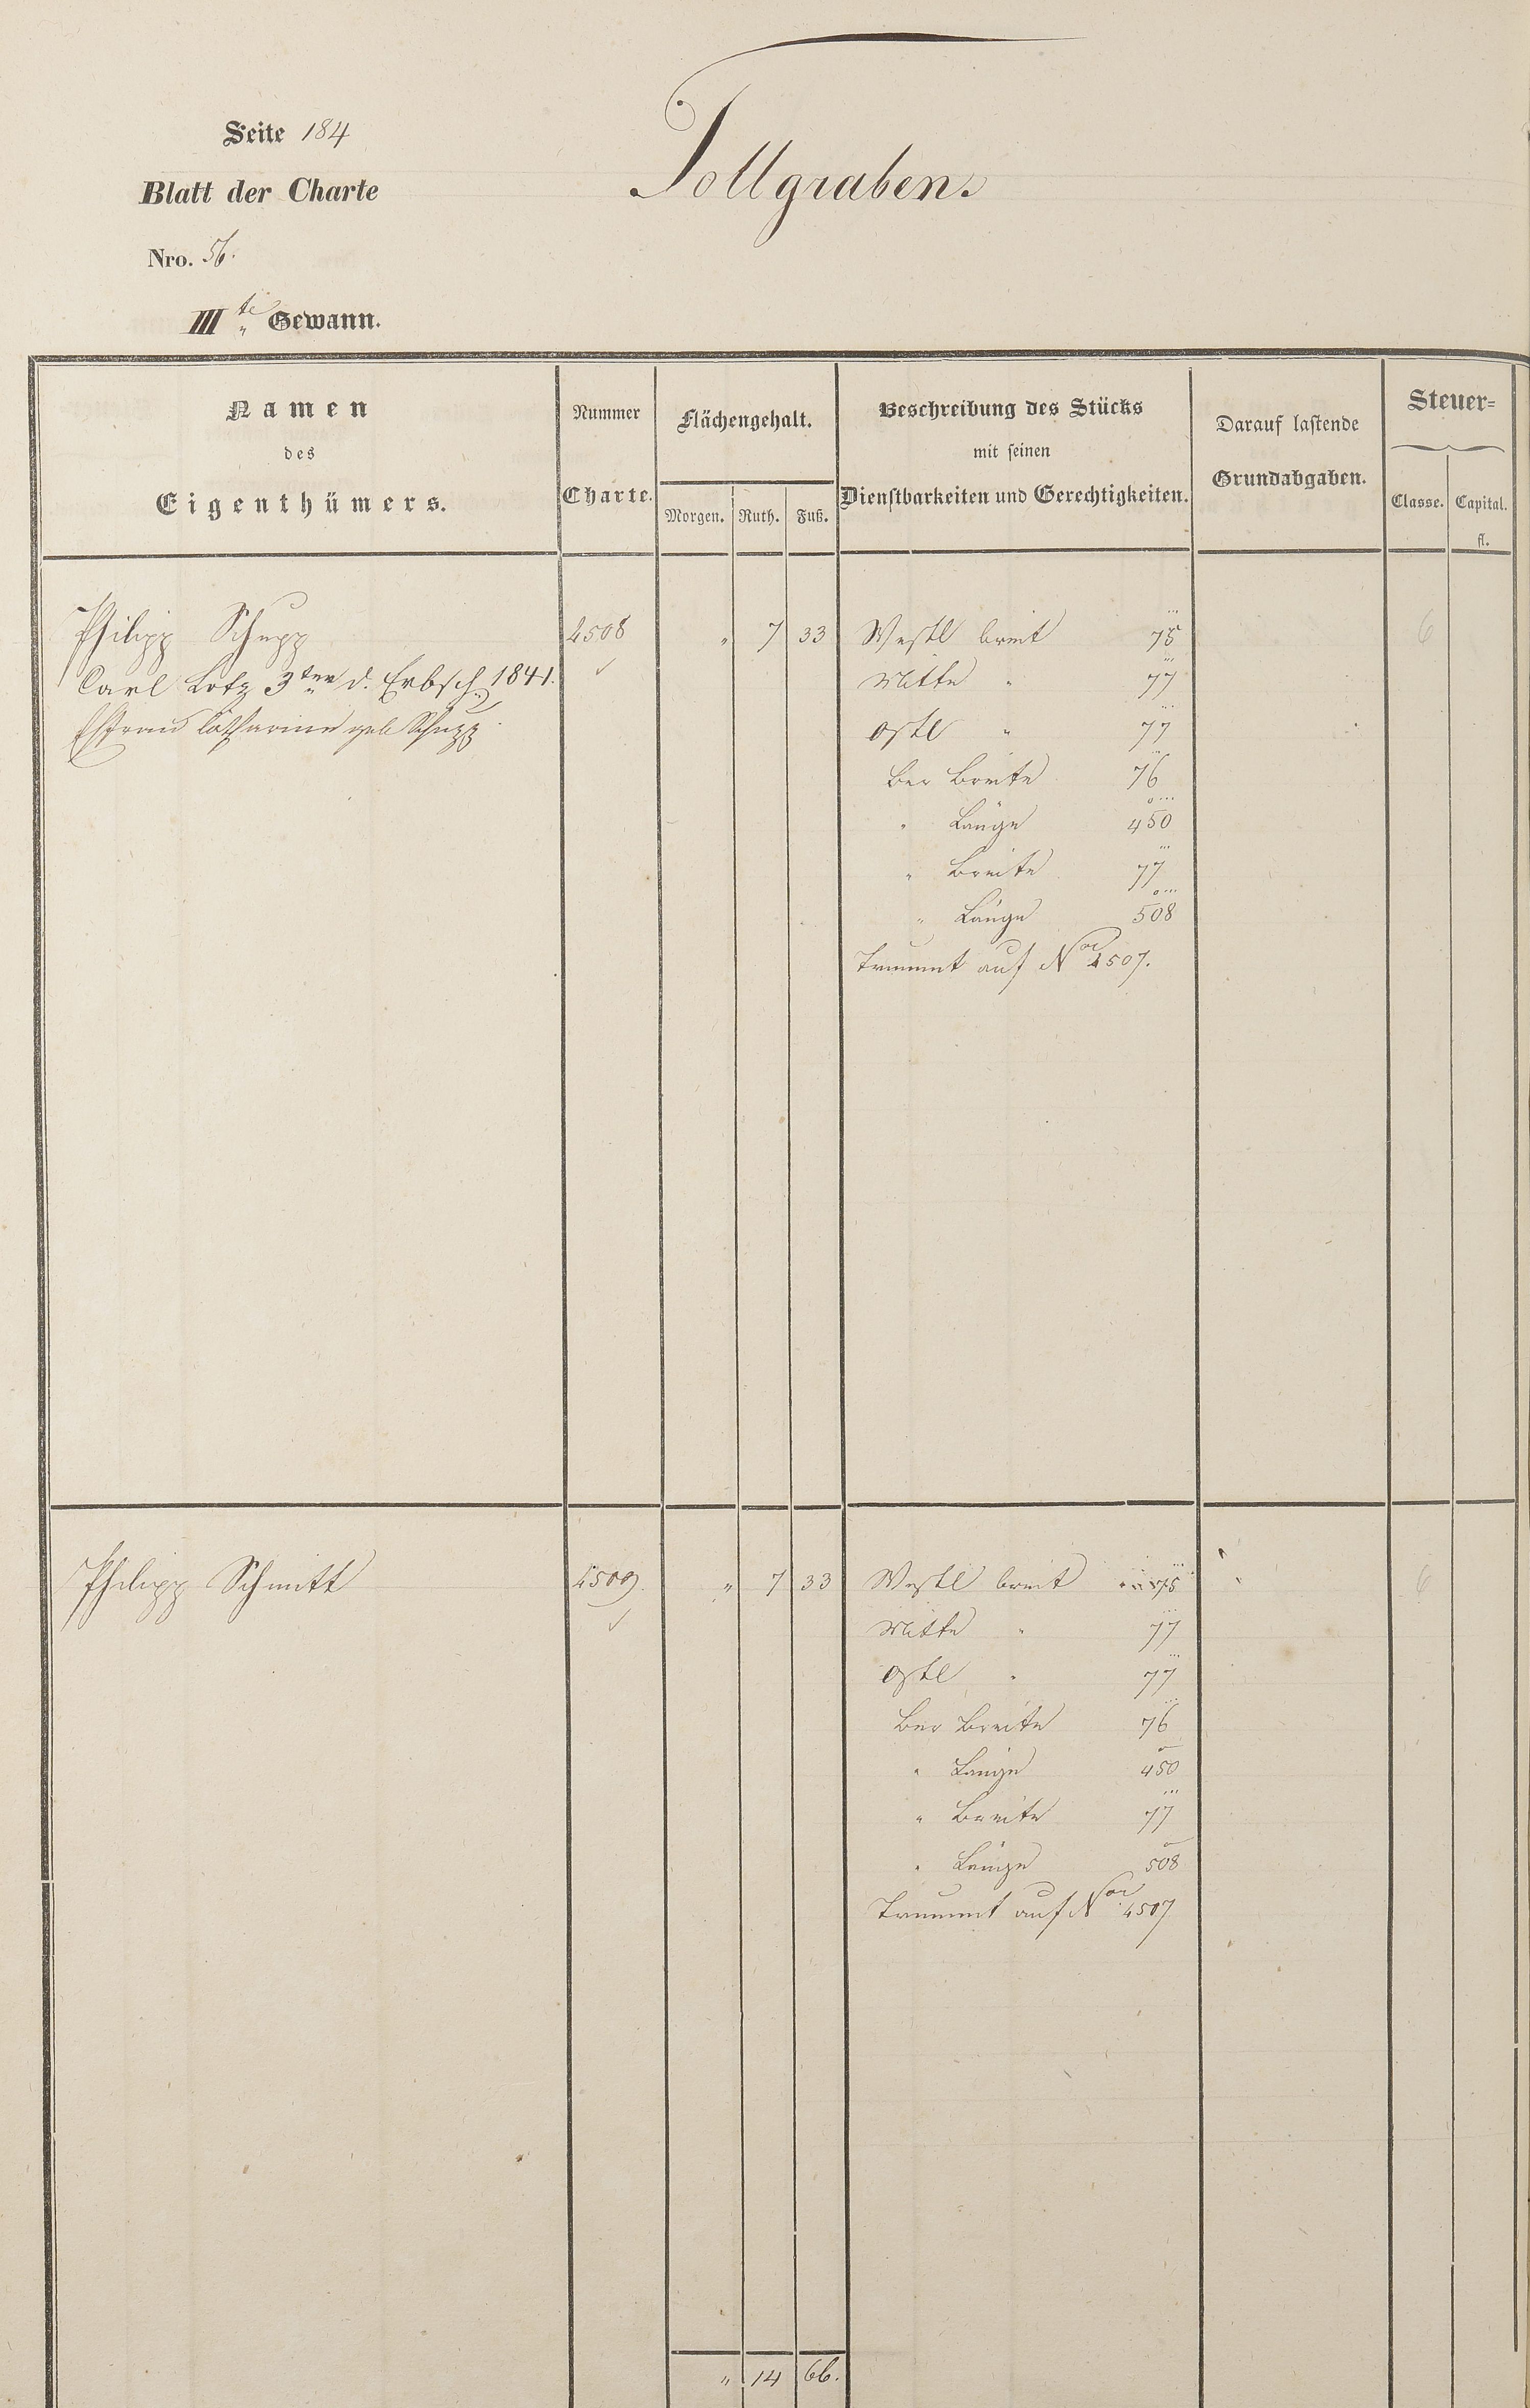 Seite 184
Tollgraben.
Blatt der Charte
Nro. 56.
III te Gewann.
Namen
des
Eigenthümers.
Nummer
Charte.
Flächengehalt.
Morgen. Ruth. Fuß.
Beschreibung des Stücks
mit seinen
Dienstbarkeiten und Gerechtigkeiten.
Darauf lastende
Grundabgaben.
Steuer=
Classe. Capital.
fl.
Philipp Schupp 4508 „ 7 33 Westl breit 75 6
Carl Lotz 3ter d. Erbsch. 1841. Mitte " 77
Ehfrau Catharine geb Schupp. Ostl " 77
Ber Breite 76
" Länge 450
" Breite 77
" Länge 508
Trummt auf No 4507.
Philipp Schmitt 4509 „ 7 33 Westl breit 75 6
Mitte " 77
Ostl " 77
Ber Breite 76
" Länge 450
" Breite 77
" Länge 508
Trummt auf No 4507
„ 14 66.